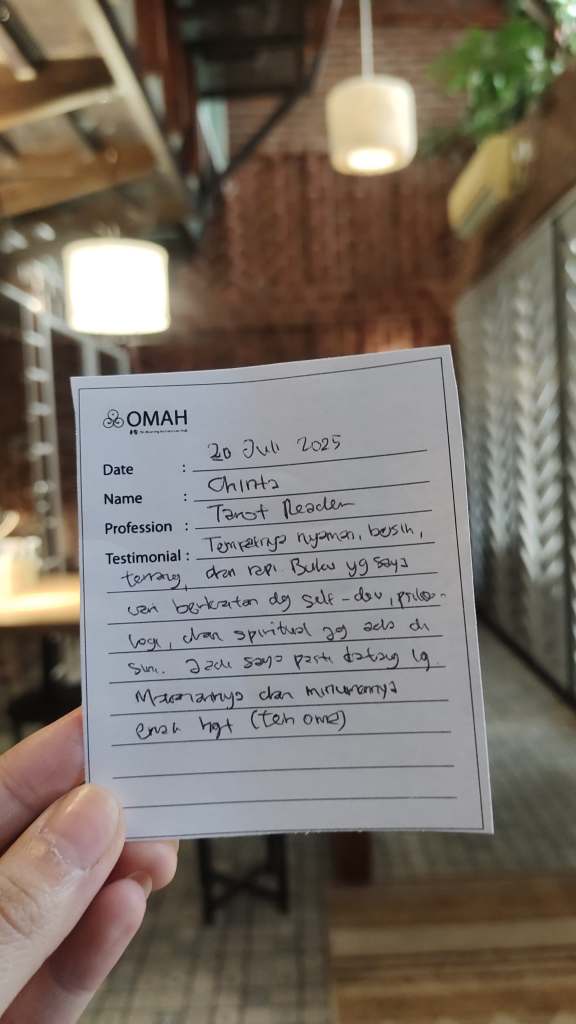 OMAH
Date : 20 Juli 2025
Name : Chinta
Profession : Tarot Reader
Testimonial : Tempatnya nyaman, bersih,
tenang, dan rapi. Buku yg saya
cari berkaitan dg self-dev, psiko-
logi, dan spiritual yg ada di
sini. Jadi saya pasti datang lg.
Makanannya dan minumannya
enak bgt (teh omah)